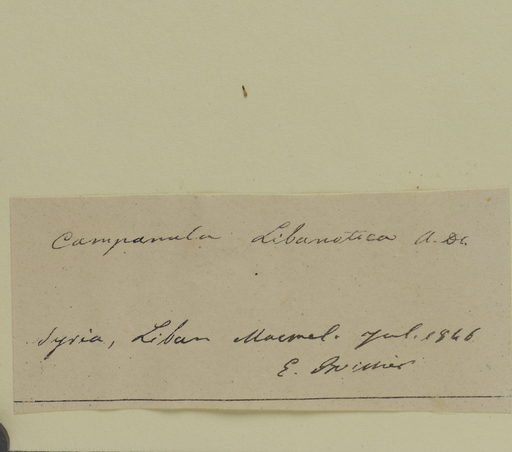 Campanula Libanotica A. Dc.
Syria, Liban Macmel. Jul. 1846
E. Boissier